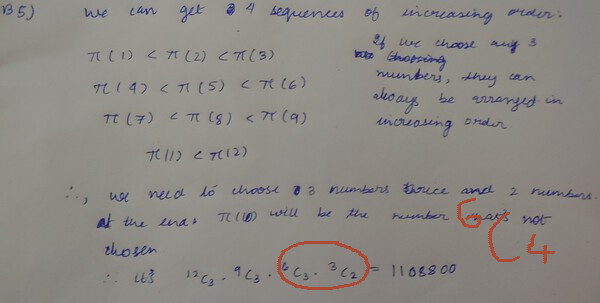 B5) We can get 4 sequences of increasing order:
π(1) < π(2) < π(3)
π(4) < π(5) < π(6)
π(7) < π(8) < π(9)
π(11) < π(12)
If we choose any 3
numbers, they can
always be arranged in
increasing order.
∴, we need to choose 3 numbers thrice and 2 numbers
at the end. π(10) will be the number that's not
chosen
∴ it's ¹²C₃ · ⁹C₃ · ⁶C₃ · ³C₂ = 1108800
6
4